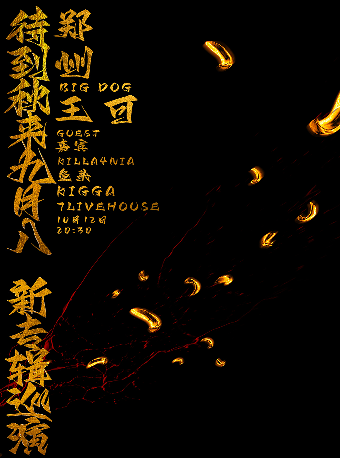 待到秋来九月八
新专辑巡演
郑州
BIG DOG
王可
GUEST
嘉宾
KILLA4NIA
KIGGA
7LIVEHOUSE
10月12日
20:30